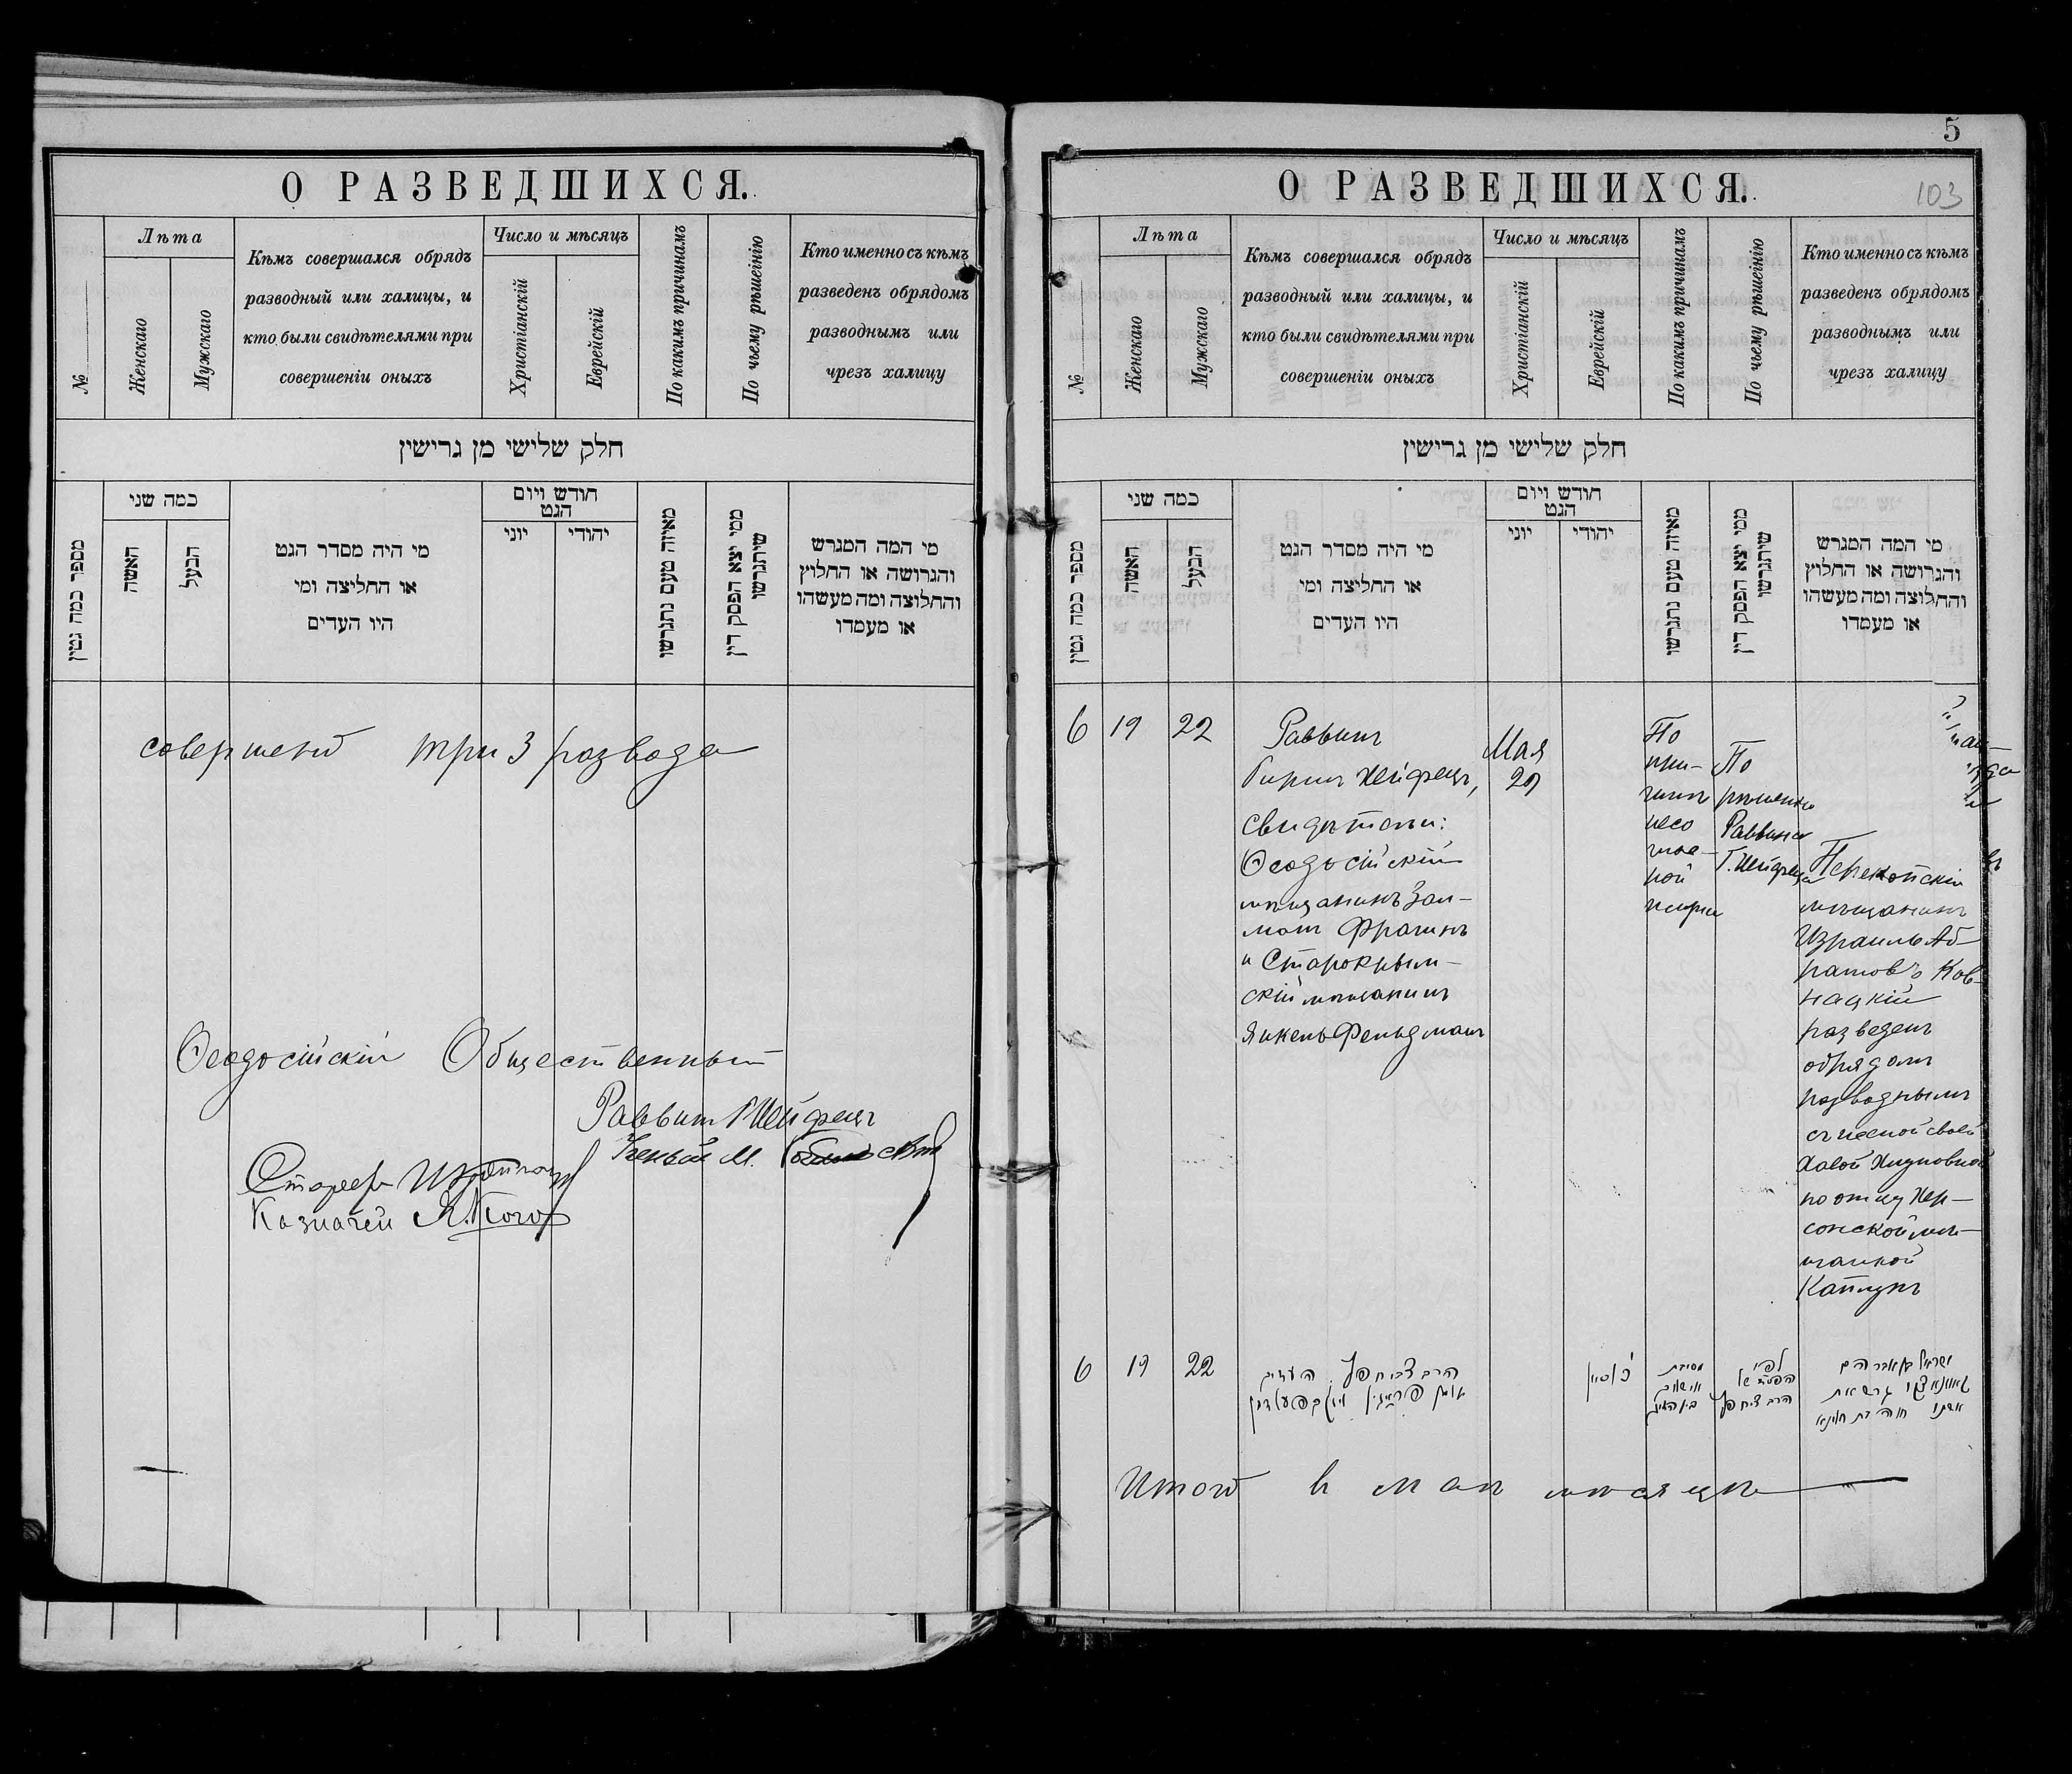 О РАЗВЕДШИХСЯ.
№
Лѣта
Женскаго
Мужскаго
Кѣмъ совершался обрядъ
разводный или халицы, и
кто были свидѣтелями при
совершеніи оныхъ
Число и мѣсяцъ
Христіанскій
Еврейскій
По какимъ причинамъ
По чьему рѣшенію
Кто именно съ кѣмъ
разведенъ обрядомъ
разводнымъ или
чрезъ халицу
חלק שלישי מן גרישין
מספר כמה גטין
כמה שני
האשה
הבעל
מי היה מסדר הגט
או החליצה ומי
היו העדים
חודש ויום
הגט
יוני
יהודי
מאיזה טעם נתגרשו
ממי יצא הפסק דין
שיתגרשו
מי המה המגרש
והגרושה או החלוץ
והחלוצה ומה מעשהו
או מעמדו
совершенъ три 3 развода
Ѳеодосійскій Общественный
Раввинъ Г Хейфецъ
Ученый М.
Староста
Казначей Я. Коган
5
103
О РАЗВЕДШИХСЯ.
№
Лѣта
Женскаго
Мужскаго
Кѣмъ совершался обрядъ
разводный или халицы, и
кто были свидѣтелями при
совершеніи оныхъ
Число и мѣсяцъ
Христіанскій
Еврейскій
По какимъ причинамъ
По чьему рѣшенію
Кто именно съ кѣмъ
разведенъ обрядомъ
разводнымъ или
чрезъ халицу
חלק שלישי מן גרישין
מספר כמה גטין
כמה שני
האשה
הבעל
מי היה מסדר הגט
או החליצה ומי
היו העדים
חודש ויום
הגט
יוני
יהודי
מאיזה טעם נתגרשו
ממי יצא הפסק דין
שיתגרשו
מי המה המגרש
והגרושה או החלוץ
והחלוצה ומה מעשהו
או מעמדו
6
19
22
Раввинъ
Гиршъ Хейфецъ,
свидѣтели:
Ѳеодосійскій
мѣщанинъ Зал-
манъ Фрагинъ
и Старокрым-
скій мѣщанинъ
Янкель Фельдманъ
Мая
29
По
при-
чинѣ
несо
глас-
ной
жизни
По
рѣшенію
Раввина
Г. Хейфеца
Перекопскій
мѣщанинъ
Израиль Аб-
рамовъ Ков-
нацкій
разведенъ
обрядомъ
разводнымъ
съ женой своей
Хавой
по отцу Хер-
сонской мѣ-
щанкой
Капланъ
6
19
22
הרב צבי חפץ העדים
סיון
מסיבת
לפי
הרב צבי חפץ
ישראל בן אברהם
גרש את
אשתו חוה בת
Итогъ в маѣ мѣсяцѣ